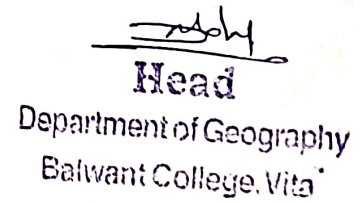 Head
Department of Geography
Balwant College, Vita